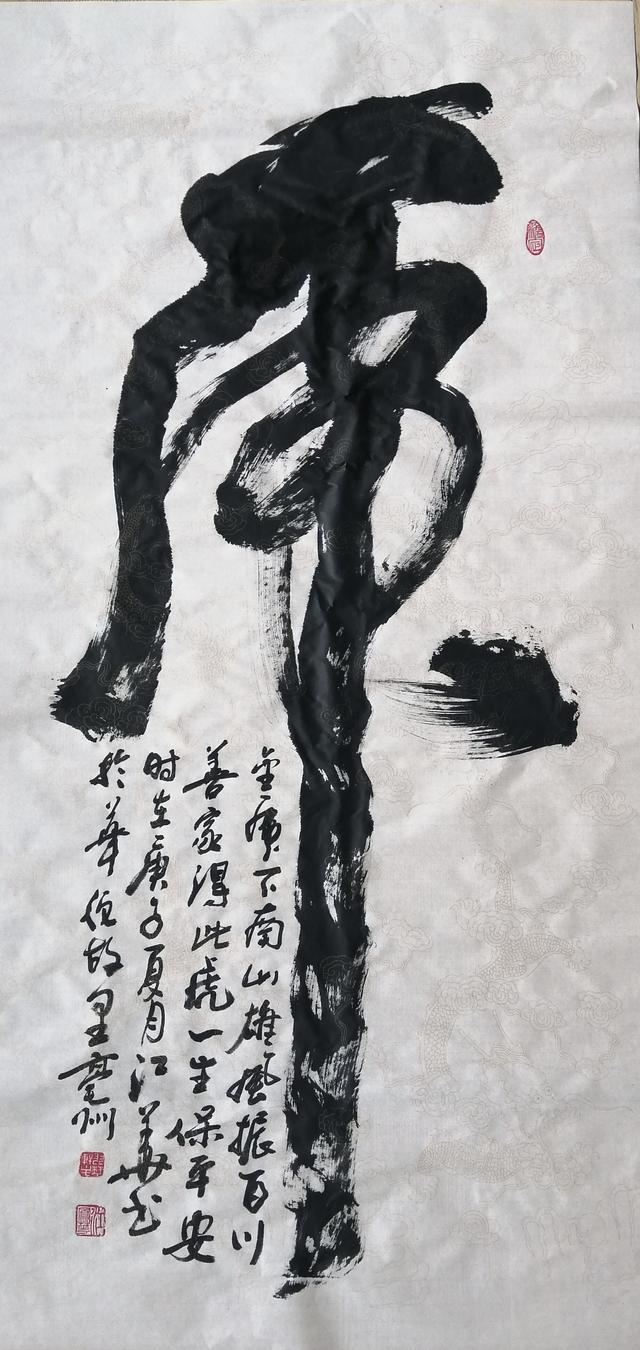 虎
金虎下南山雄風振百川
善家得此虎一生保平安
时在庚子夏月江華书
於華佗故里亳州